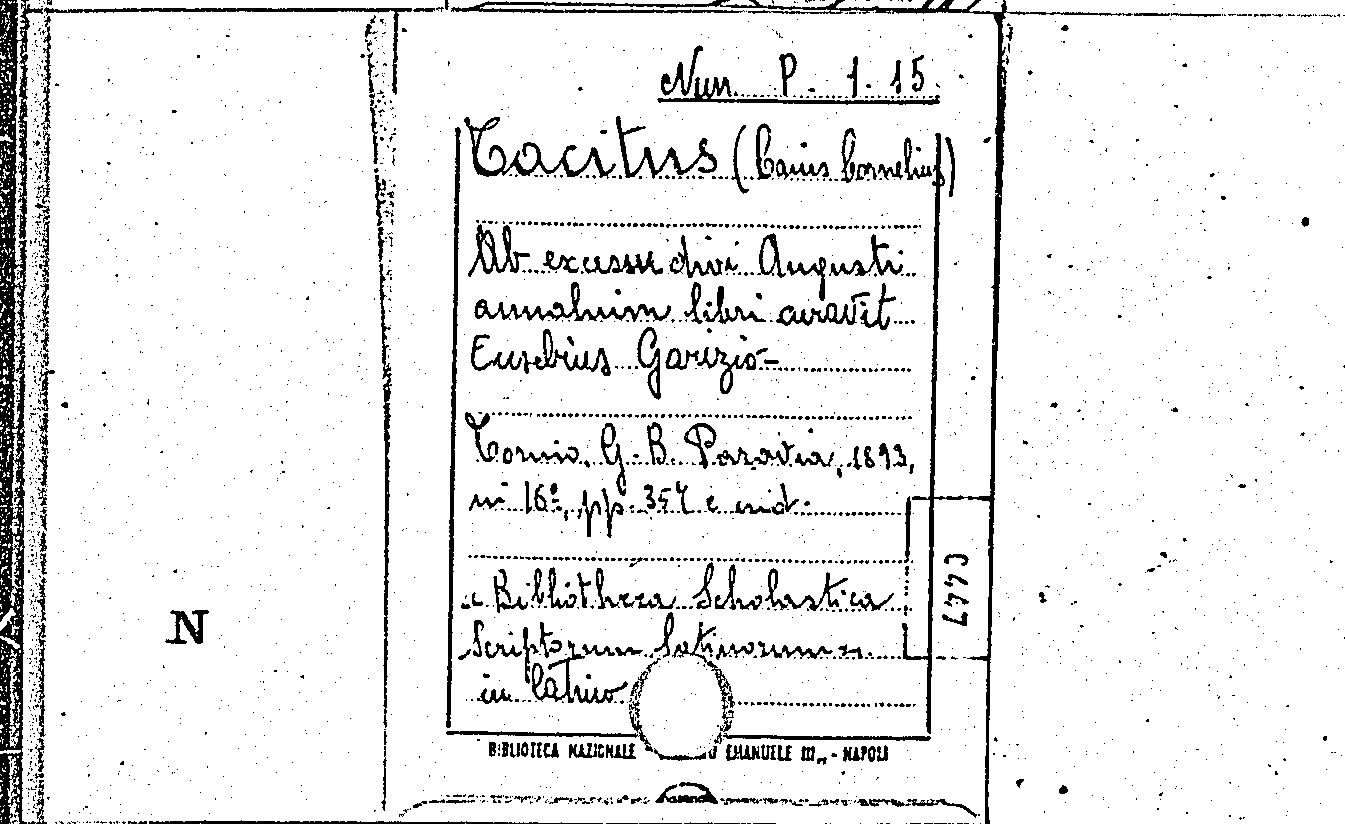 Nun P. 1. 15
Tacitus (Caius Cornelius)
Ab excessu divi Augusti
annalium libri curavit
Eusebius Garizio-
Torino, G. B. Paravia, 1893,
in 16º, pp. 357 e
« Bibliotheca Scholastica
Scriptorum latinorum ».
in latino
N
BIBLIOTECA NAZIONALE EMANUELE III,, - NAPOLI